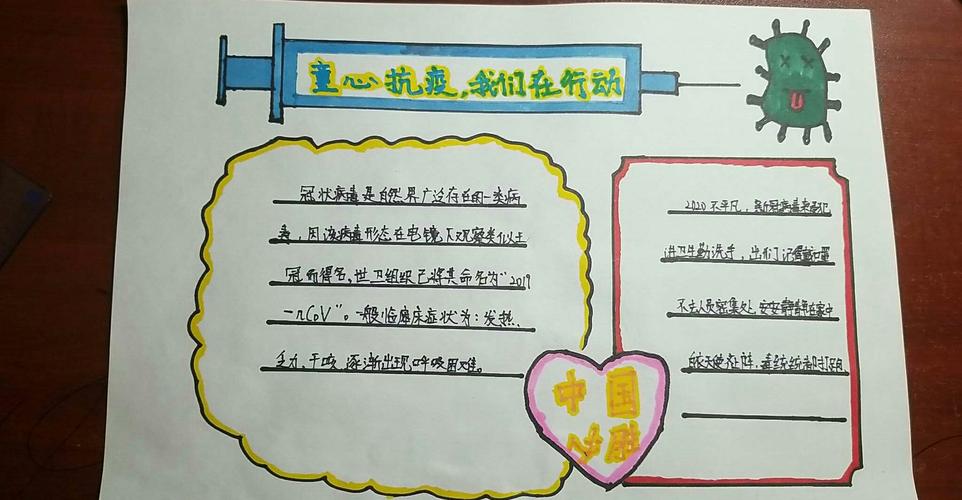 童心抗疫,我们在行动
冠状病毒是自然界广泛存在的一类病
毒,因该病毒形态在电镜下观察类似王
冠而得名,世卫组织已将其命名为“2019
-nCoV”。一般临床症状为:发热、
乏力、干咳、逐渐出现呼吸困难。
2020不平凡,新冠病毒来
讲卫生勤洗手,出门记得戴口罩
不去人员密集处,安安静静在家中
白衣天使去上阵,毒统统都打
中国
必胜